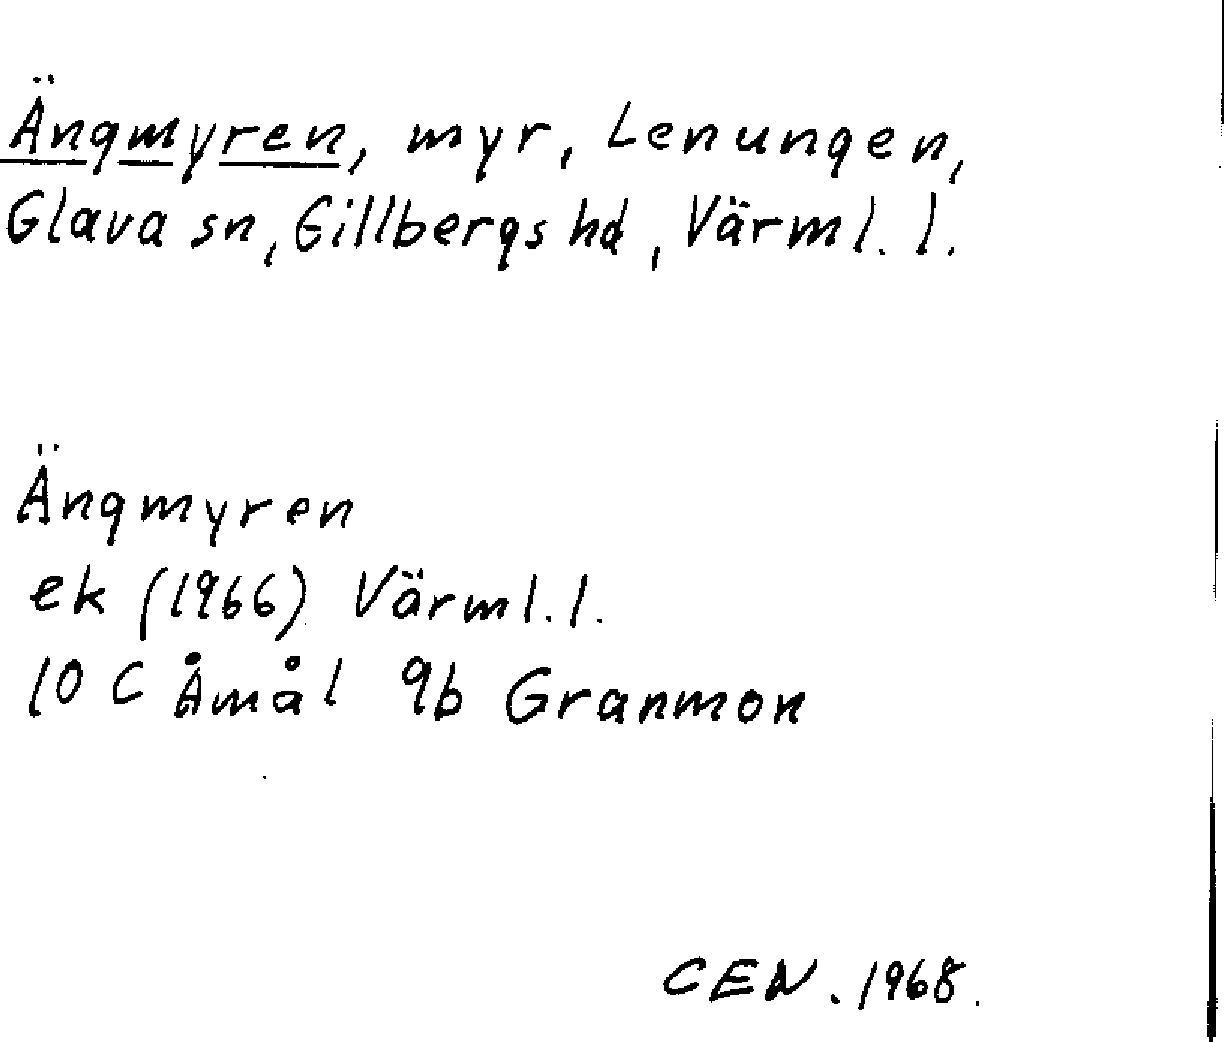 Ängmyren, myr, Lenungen,
Glava sn, Gillbergs hd, Värml. l.
Ängmyren
ek (1966) Värml. l.
10 C Åmål 9b Granmon
CEN. 1968.